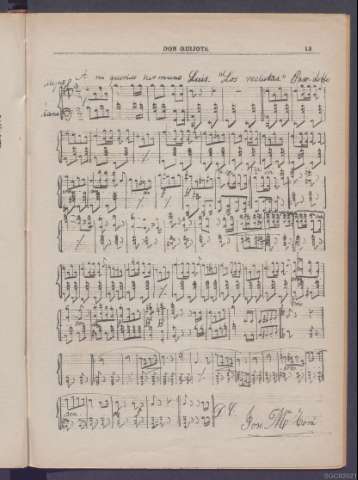 DON QUIJOTE. 13
A mi querido hermano Luis. "Los reclutas" Paso-doble
Piano
D.C.
José Mª
SGCB2021